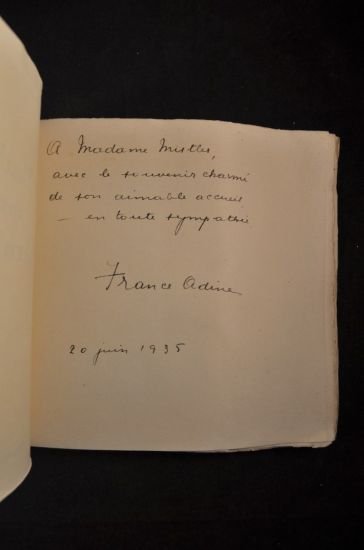 A Madame Mistler,
avec le souvenir charmé
de son aimable accueil
— en toute sympathie
France Adine
20 juin 1935